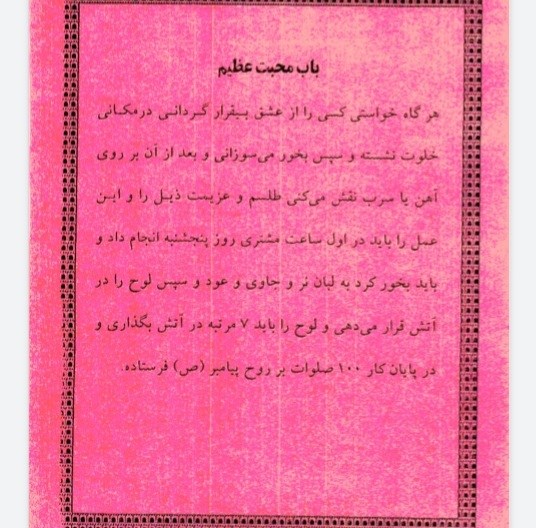 باب محبت عظیم
هر گاه خواستی کسی را از عشق بیقرار گردانی در مکانی
خلوت نشسته و سپس بخور می‌سوزانی و بعد از آن بر روی
آهن یا سرب نقش می‌کنی طلسم و عزیمت ذیل را و این
عمل را باید در اول ساعت مشتری روز پنجشنبه انجام داد و
باید بخور کرد به لبان نر و جاوی و عود و سپس لوح را در
آتش قرار می‌دهی و لوح را باید ۷ مرتبه در آتش بگذاری و
در پایان کار ۱۰۰ صلوات بر روح پیامبر (ص) فرستاده.